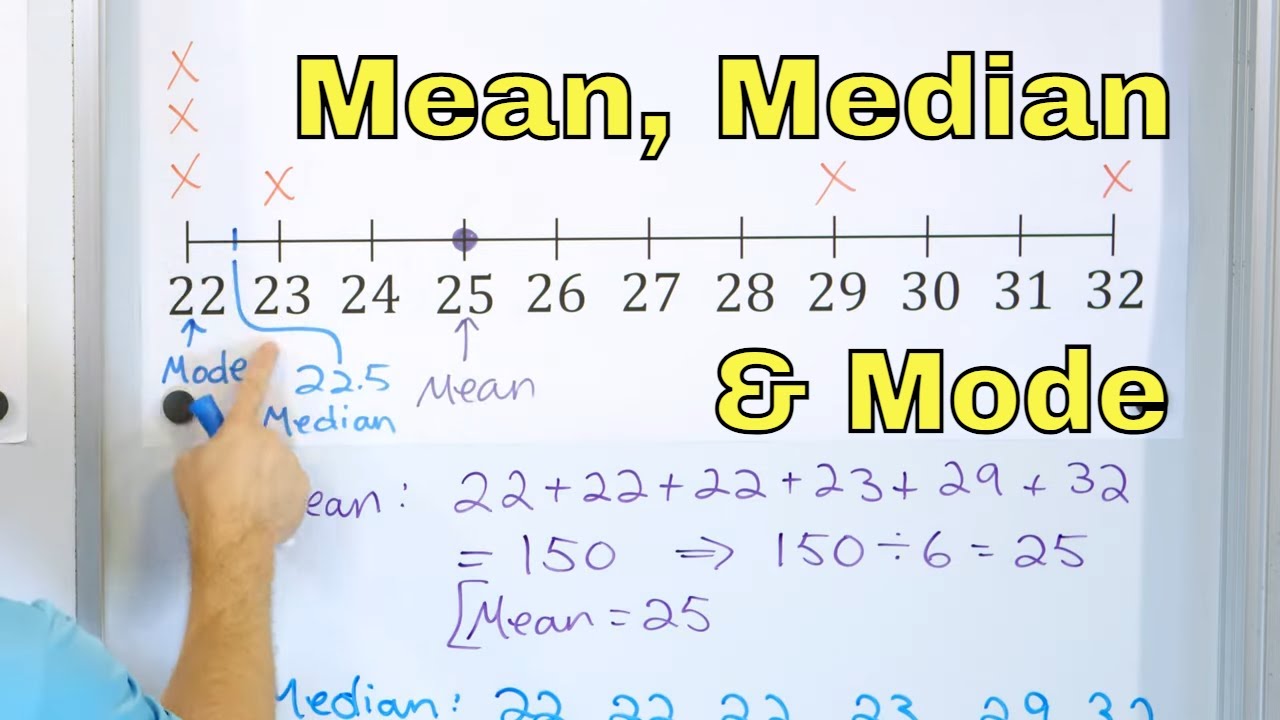 Mean, Median
X
X
X X X X
22 23 24 25 26 27 28 29 30 31 32
Mode 22.5 Mean
Median
& Mode
ean: 22+22+22+23+29+32
= 150 ⇒ 150÷6=25
[Mean=25
Median: 22 22 22 23 29 32